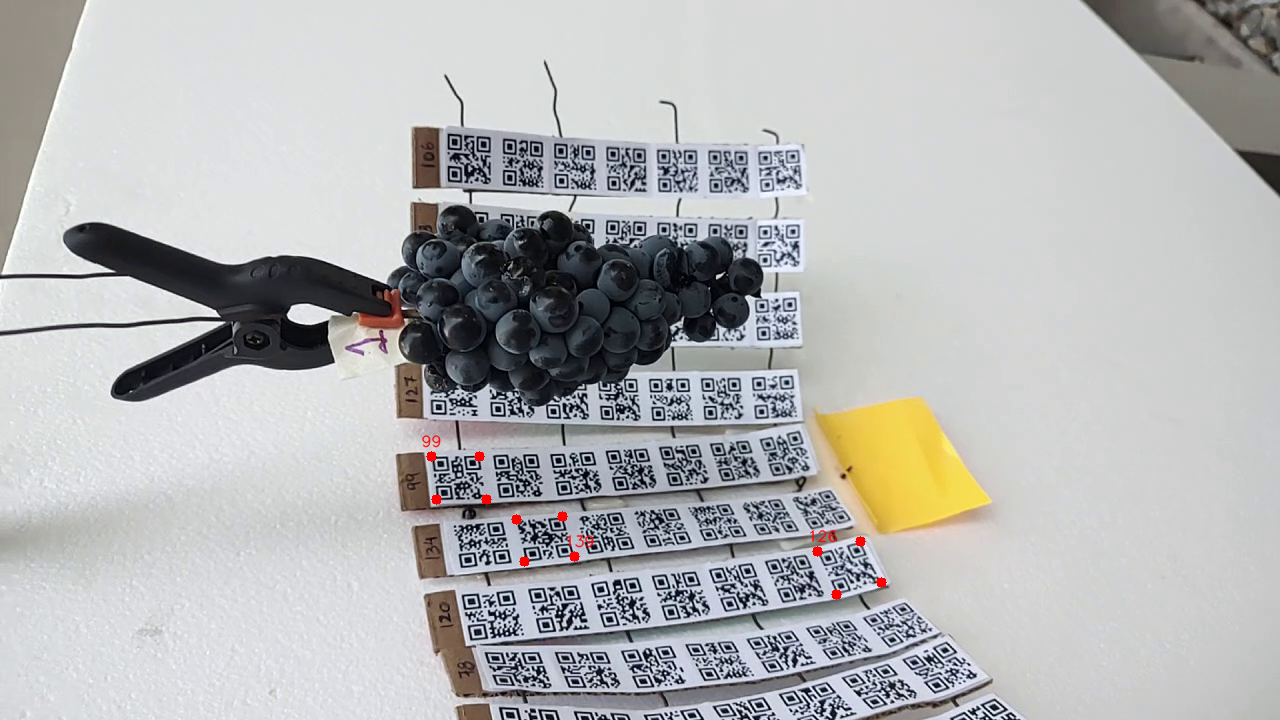 106
1
127
99
99
134
139
126
120
78